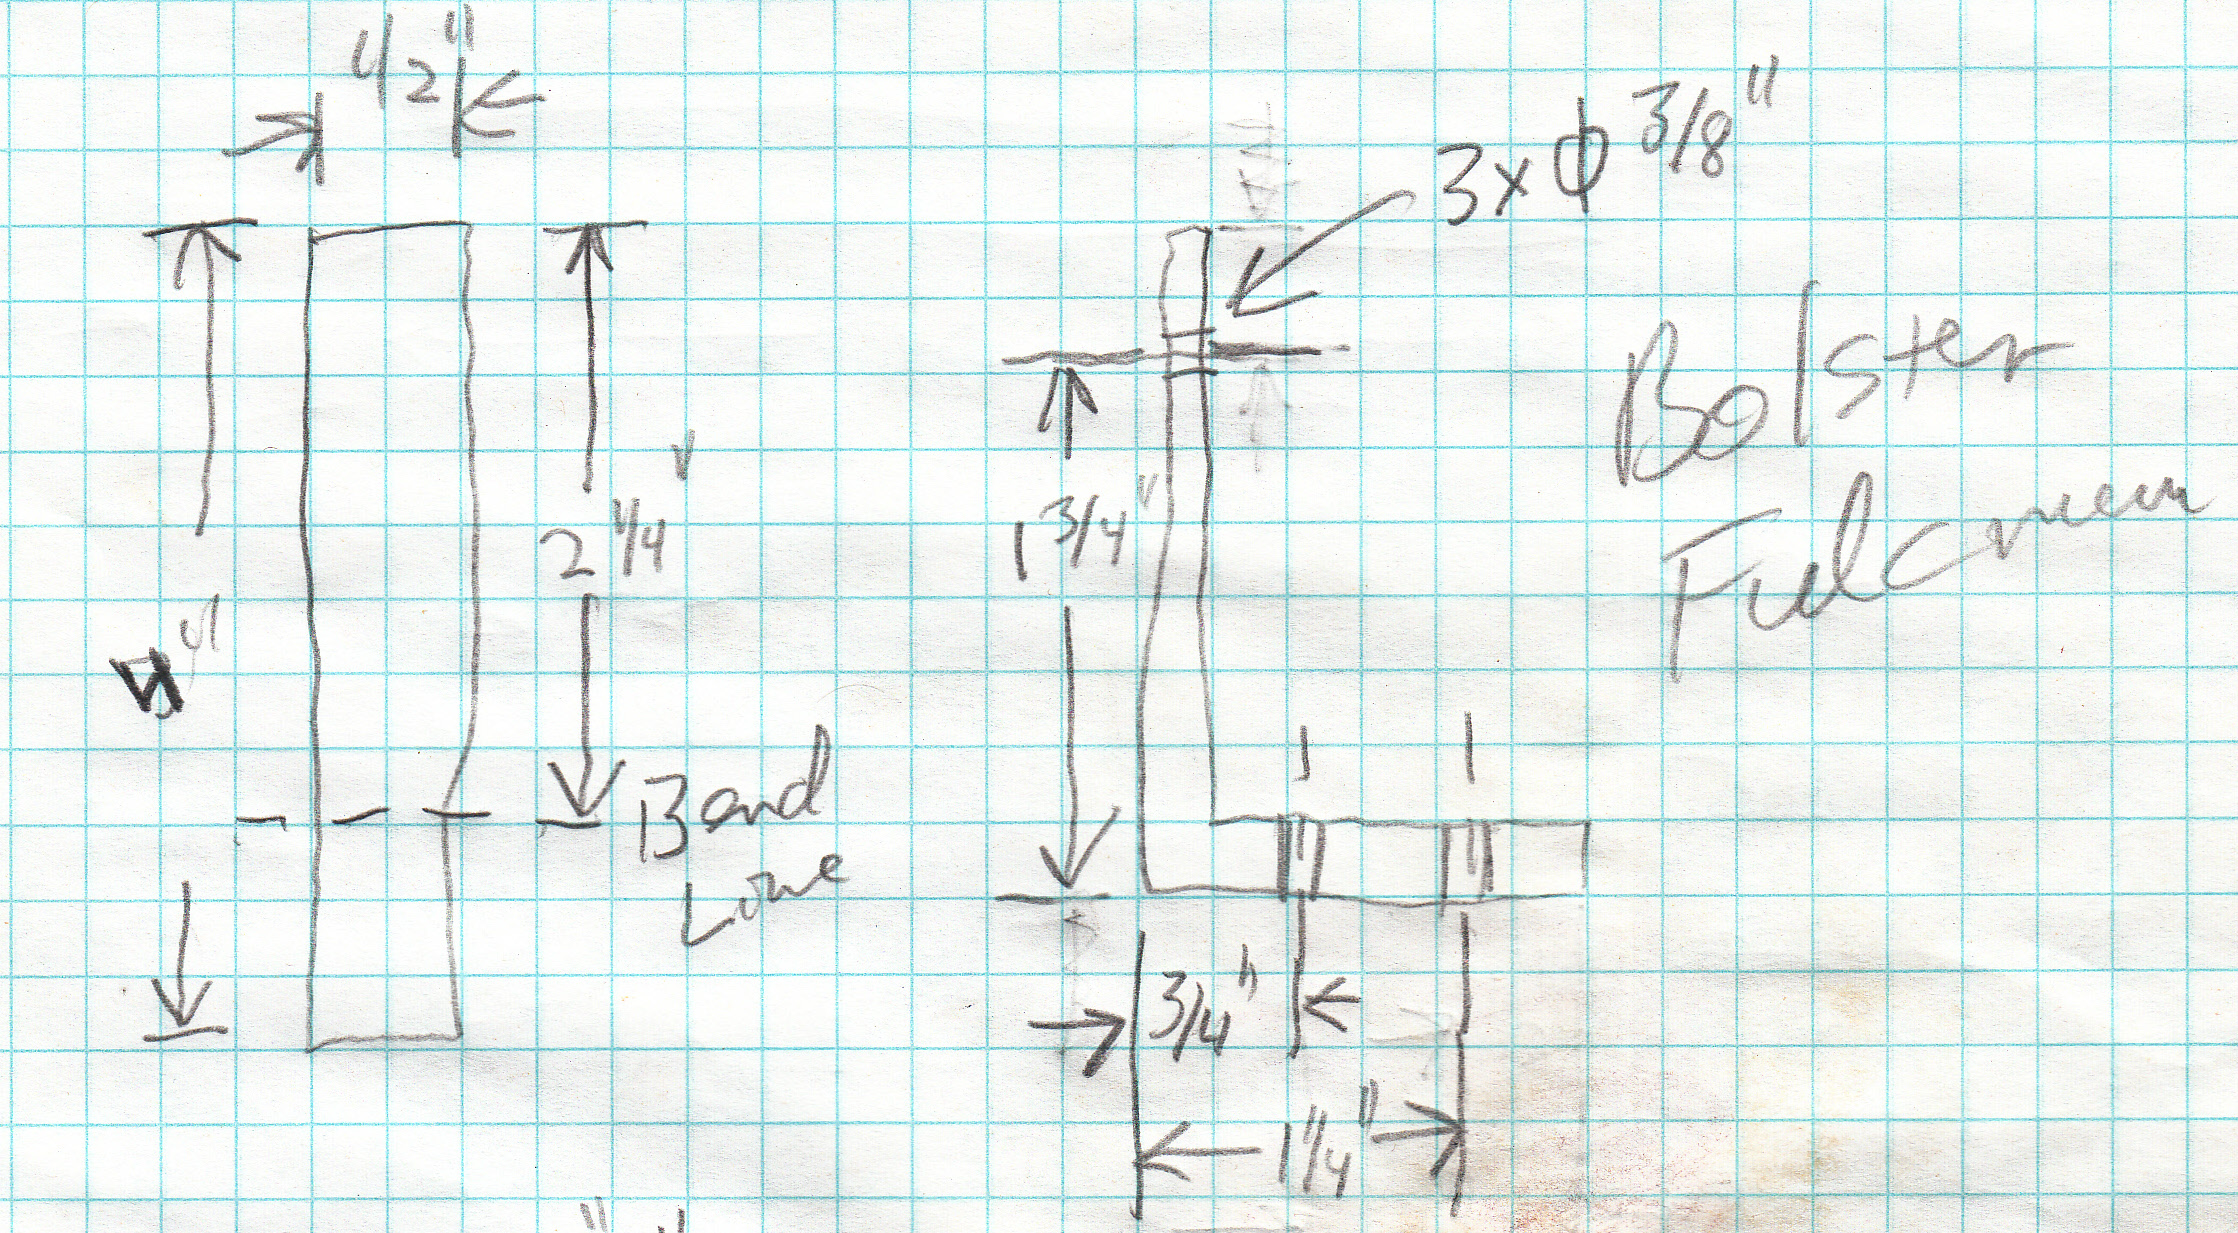 1/2"
3x Φ 3/8"
Bolster
Fulcrum
2 1/4"
Bend
Line
1 3/4"
3/4"
1 1/4"